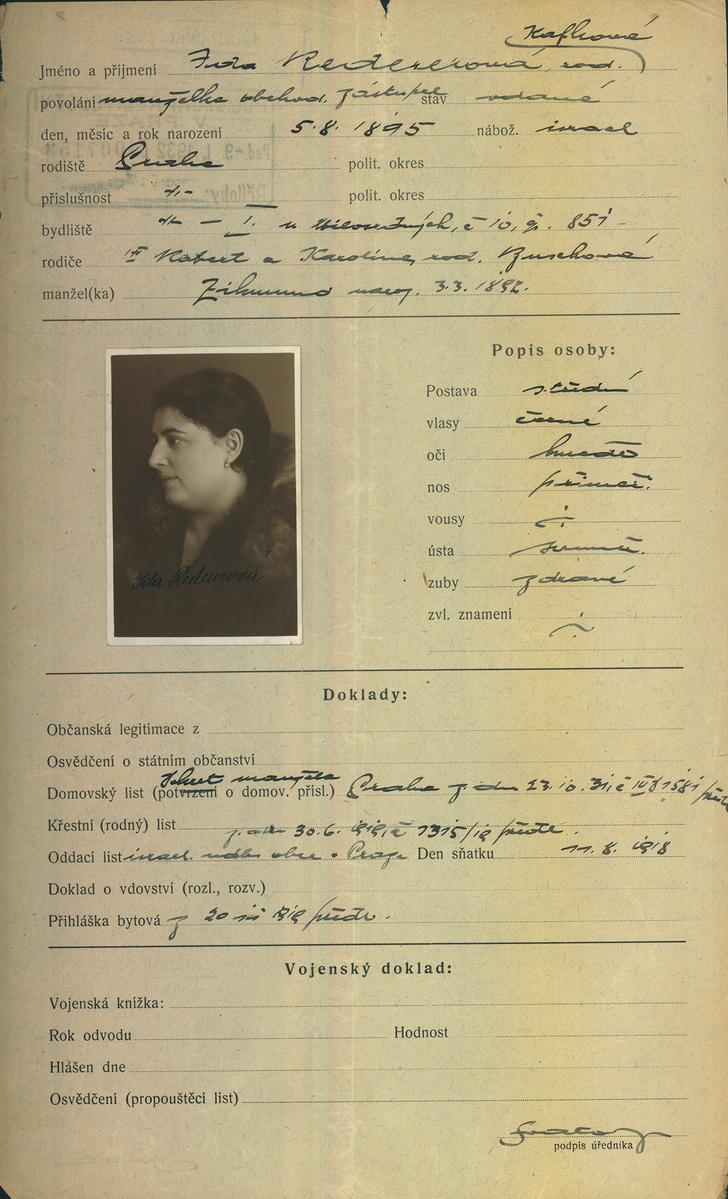 Kafková
Jméno a příjmení Ida Redererová, roz.
povolání manželka obchod. zástupce stav vdaná
den, měsíc a rok narození 5.8.1895 nábož. israel
rodiště Praha polit. okres
příslušnost -"- polit. okres
bydliště -"- - I. u Milosrdných, č 10, čp. 851
rodiče Robert a Karolina, roz. Buschová
manžel(ka) Zikmund naroz. 3.3.1892.
Popis osoby:
Postava střední
vlasy černé
oči hnědé
nos přiměř.
vousy
ústa souměr.
zuby zdravé
zvl. znamení
Ida Redererová
Doklady:
Občanská legitimace z
Osvědčení o státním občanství
manžela
Domovský list (potvrzení o domov. přísl.) Praha z dne 23.10.31, č
Křestní (rodný) list z dne 30.6. 1919, č 1315/19
Oddací list israel. obec v Praze Den sňatku 11.8.1918
Doklad o vdovství (rozl., rozv.)
Přihláška bytová z 20
Vojenský doklad:
Vojenská knížka:
Rok odvodu Hodnost
Hlášen dne
Osvědčení (propouštěcí list)
podpis úředníka